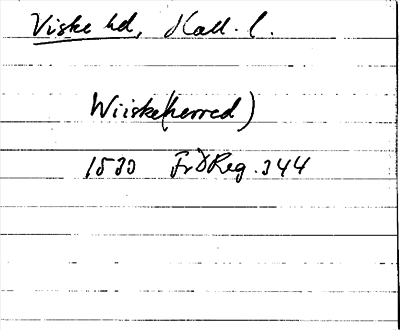 Viske hd, Hall. l.
Wiiske(herred)
1533 FrDReg. 344